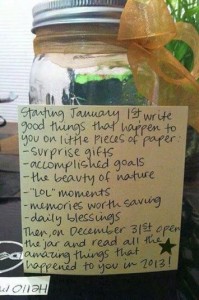 Starting January 1st write
good things that happen to
you on little pieces of paper:
- surprise gifts
- accomplished goals
- the beauty of nature
- "LOL" moments
- memories worth saving
- daily blessings
Then, on December 31st open
the jar and read all the
amazing things that
happened to you in 2013!
HELLO